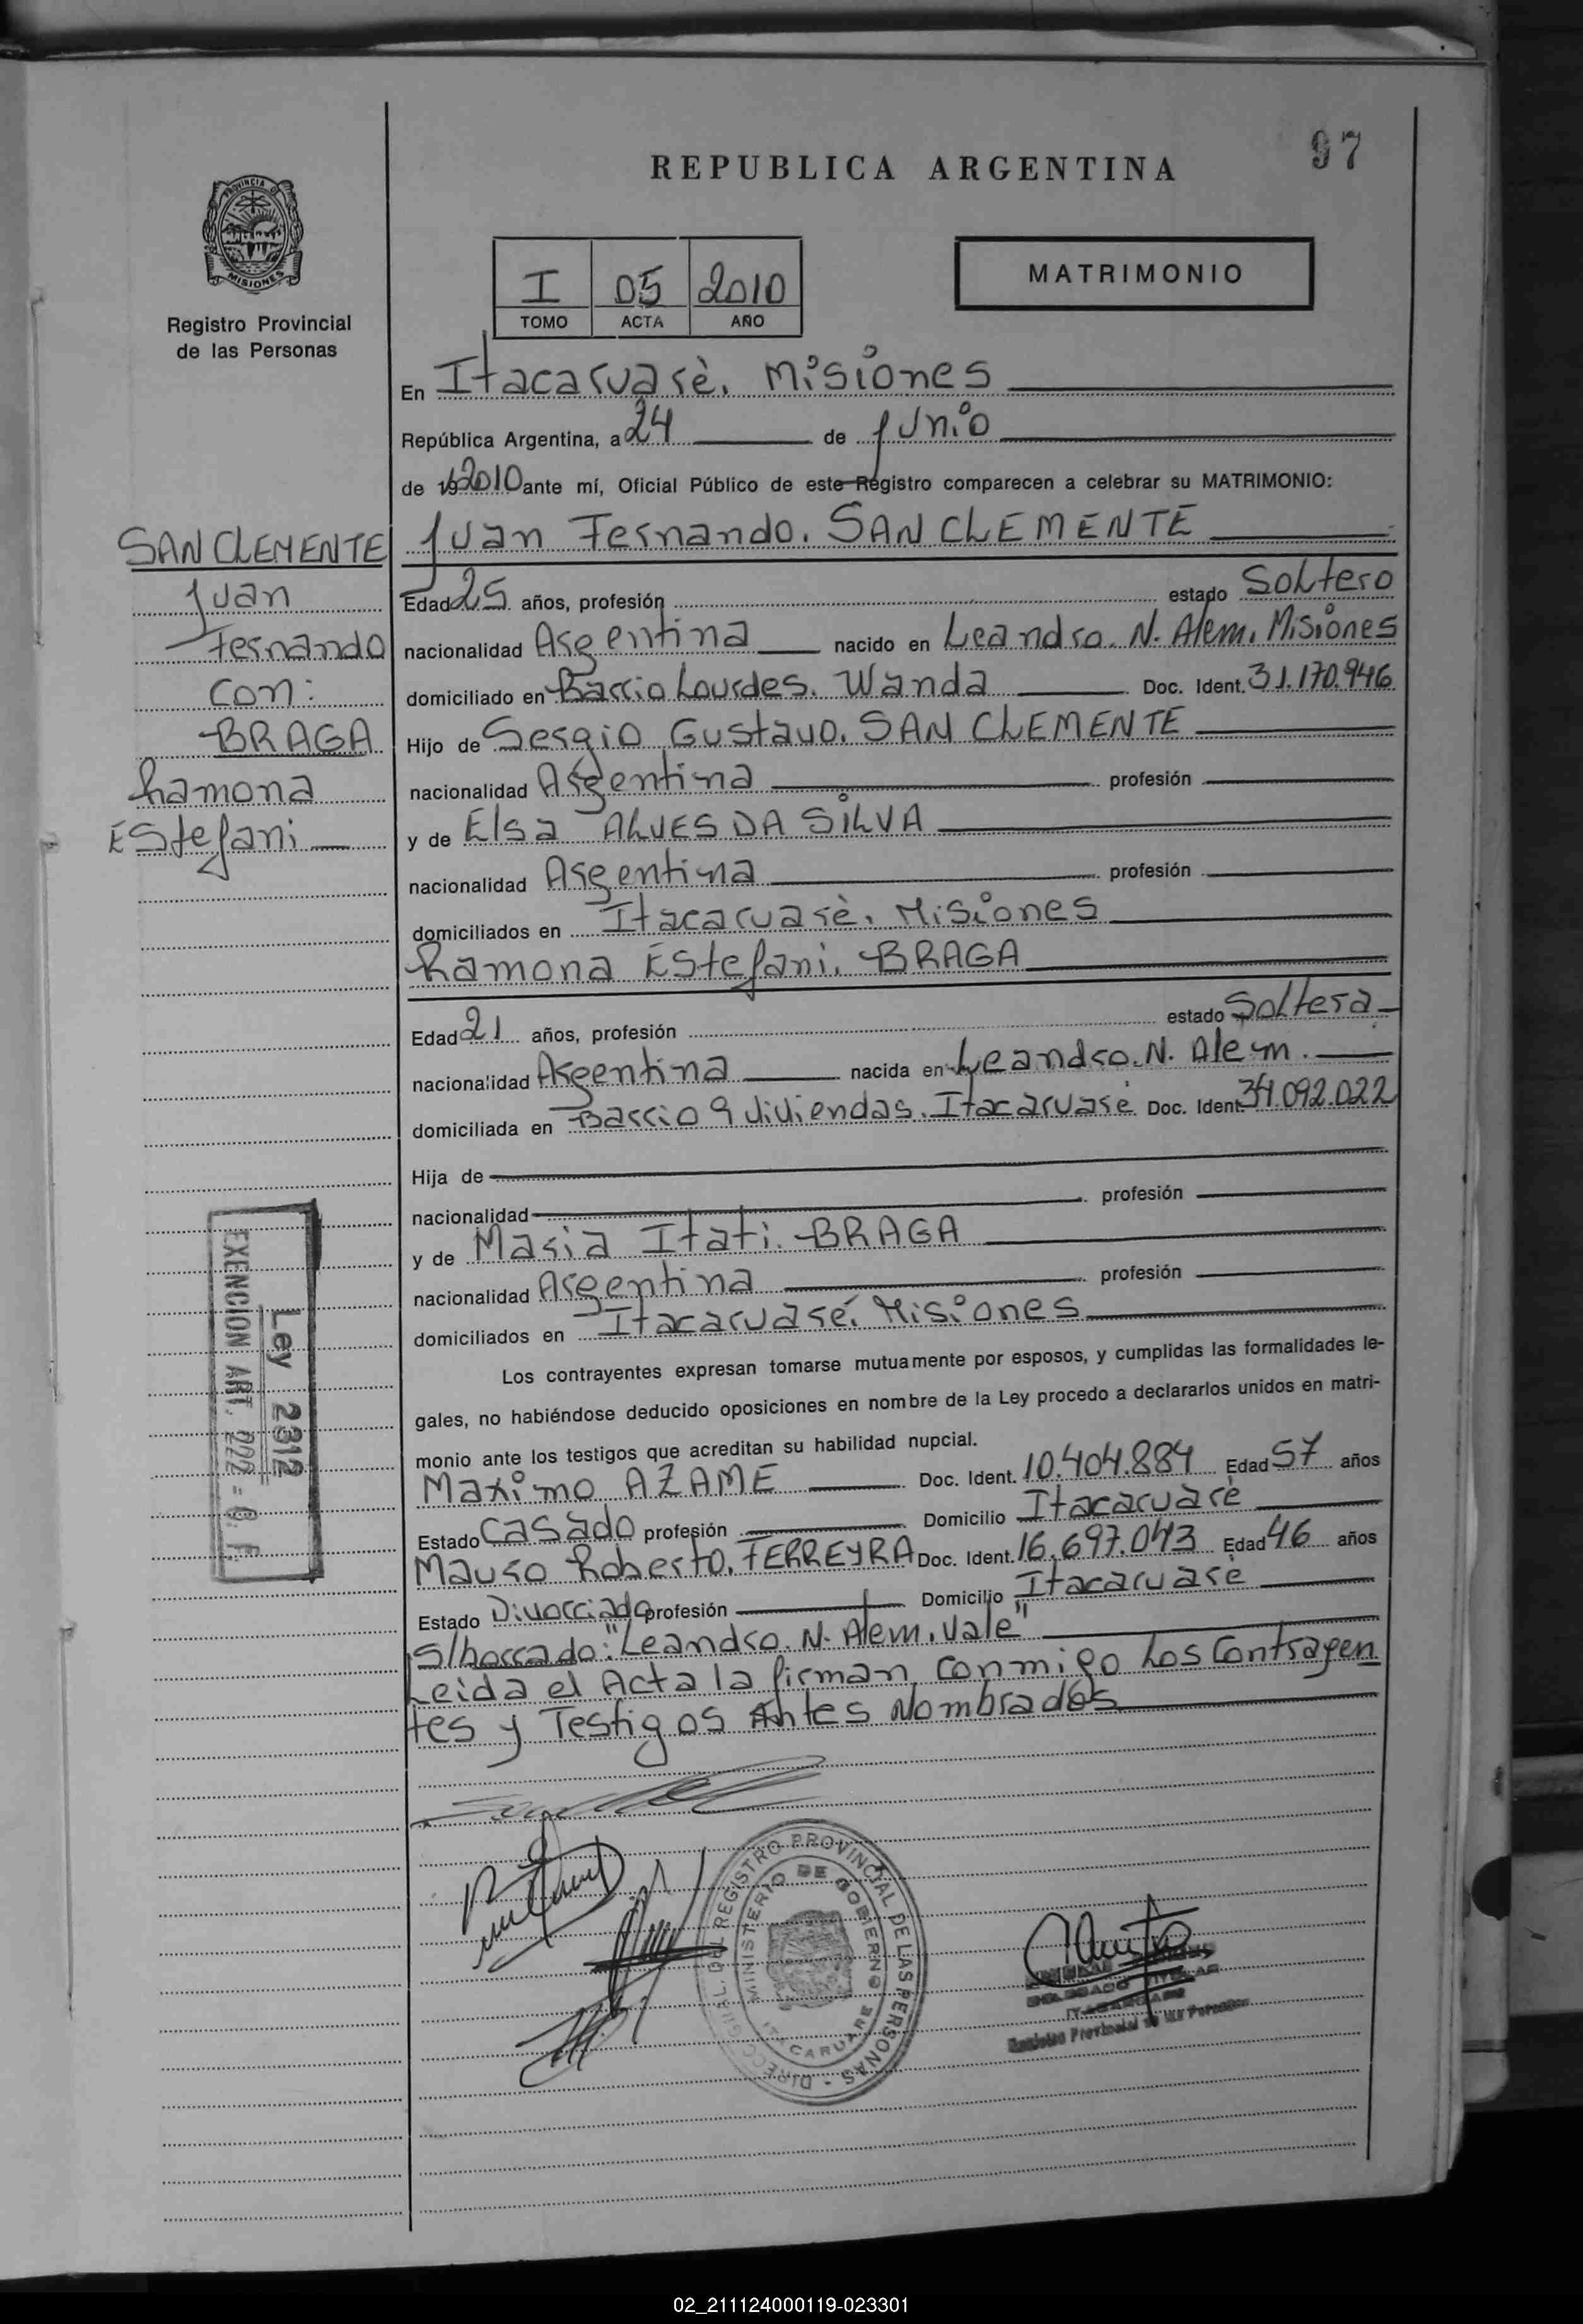 97
REPUBLICA ARGENTINA
PROVINCIA DE
MISIONES
Registro Provincial
de las Personas
I 05 2010
TOMO ACTA AÑO
MATRIMONIO
En Itacaruarè, Misiones
República Argentina, a 24 de Junio
de 19 2010 ante mí, Oficial Público de este Registro comparecen a celebrar su MATRIMONIO:
SAN CLEMENTE
Juan
Fernando
con:
BRAGA
Ramona
Estefani
Juan Fernando. SAN CLEMENTE
Edad 25 años, profesión estado Soltero
nacionalidad Argentina nacido en Leandro. N. Alem. Misiones
domiciliado en Barrio Lourdes. Wanda Doc. Ident. 31.170.946
Hijo de Sergio Gustavo. SAN CLEMENTE
nacionalidad Argentina profesión
y de Elsa ALVES DA SILVA
nacionalidad Argentina profesión
domiciliados en Itacaruarè, Misiones
Ramona Estefani. BRAGA
Edad 21 años, profesión estado Soltera
nacionalidad Argentina nacida en Leandro. N. Alem.
domiciliada en Barrio 9 viviendas. Itacaruare Doc. Ident. 34.092.022
Hija de
nacionalidad profesión
y de Maria Itati. BRAGA
nacionalidad Argentina profesión
domiciliados en Itacaruaré, Misiones
Los contrayentes expresan tomarse mutuamente por esposos, y cumplidas las formalidades le-
gales, no habiéndose deducido oposiciones en nombre de la Ley procedo a declararlos unidos en matri-
monio ante los testigos que acreditan su habilidad nupcial.
Maximo AZAME Doc. Ident. 10.404.884 Edad 57 años
Estado Casado profesión Domicilio Itacaruarè
Mauro Roberto. FERREYRA Doc. Ident. 16.697.043 Edad 46 años
Estado Divorciado profesión Domicilio Itacaruare
S/borrado: "Leandro. N. Alem, Vale"
Leida el Acta la firman conmigo Los Contrayen
tes y Testigos Antes Nombrados
Ley 2312
EXENCION ART. 222
DIRECC. GRAL. DEL REGISTRO PROVINCIAL DE LAS PERSONAS
MINISTERIO DE GOBIERNO
ITACARUARE
ITACARUARE
Registro Provincial de las Personas
02_211124000119-023301